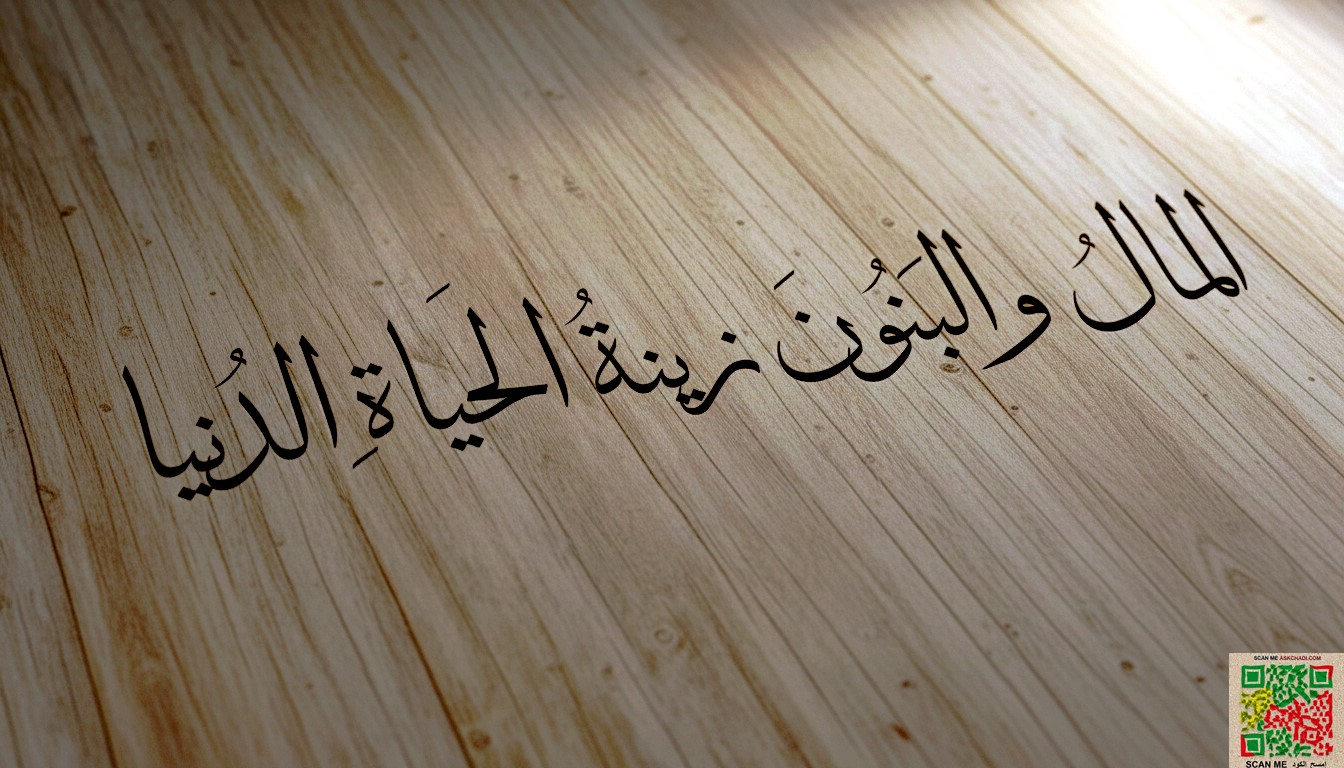 المالُ والبَنُونَ زينةُ الحيَاةِ الدُنيا
SCAN ME ASKCHADI.COM
SCAN ME امسح الكود